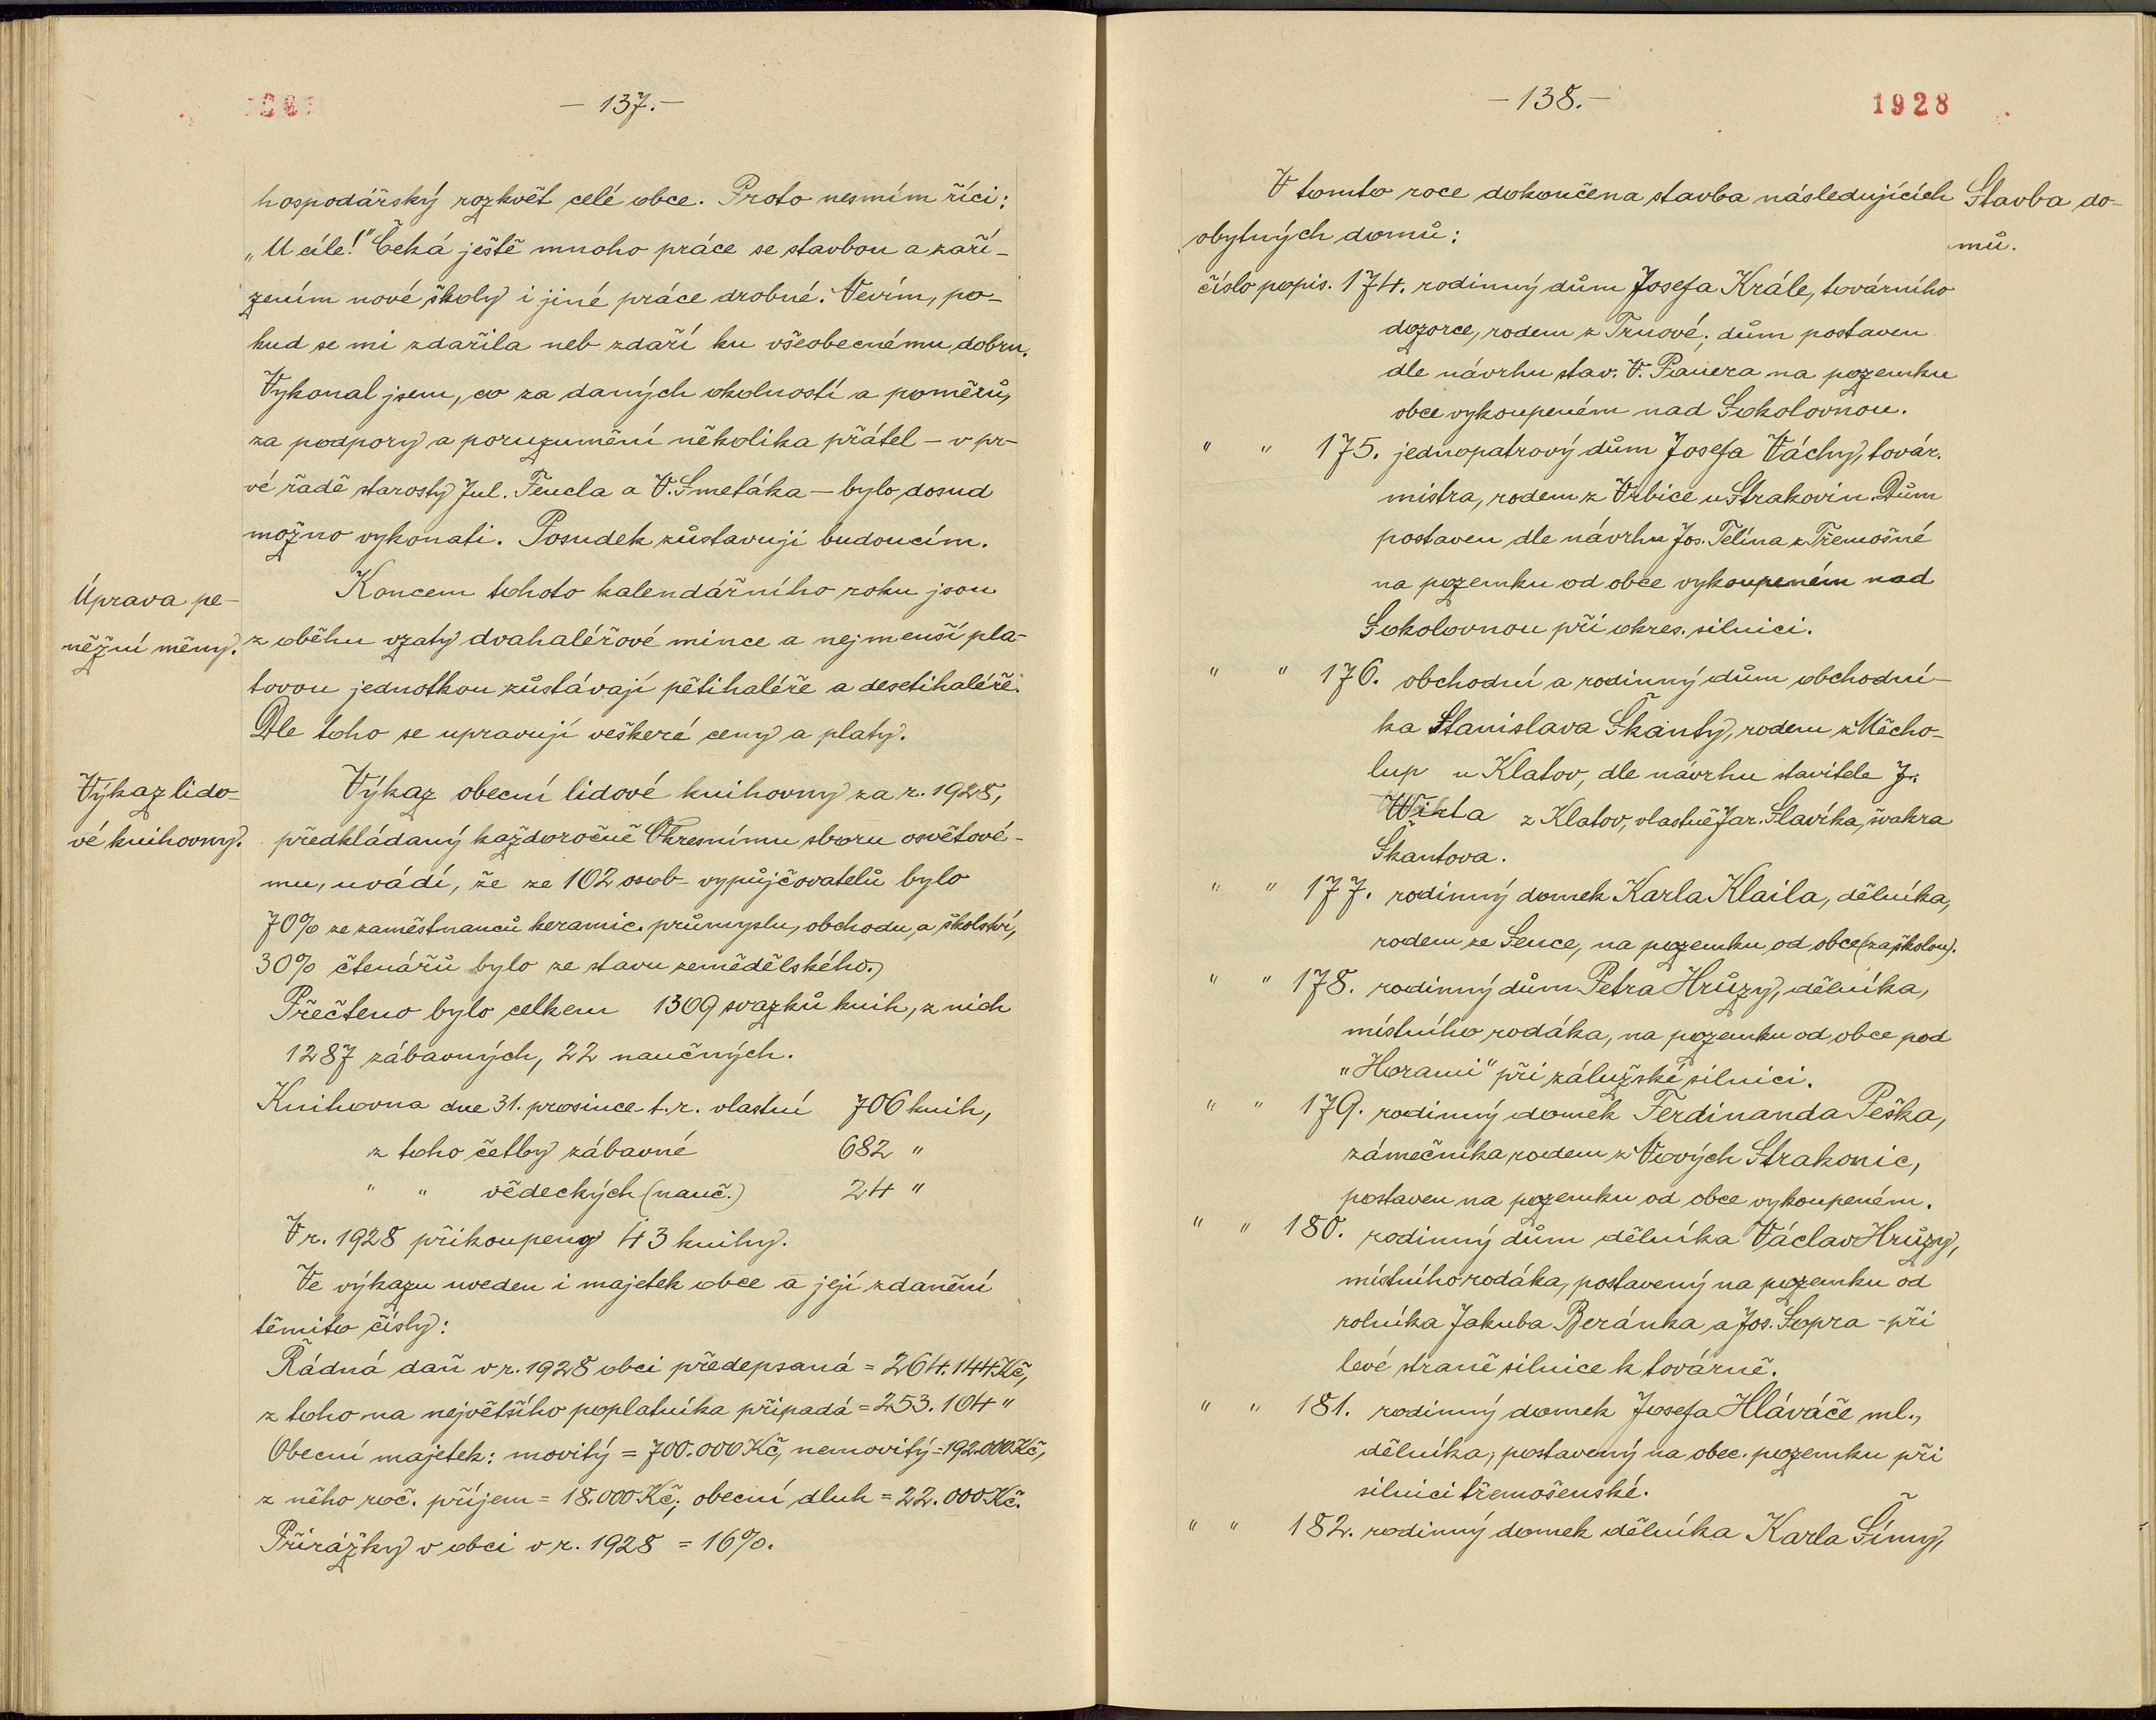 – 137. –
hospodářský rozkvět celé obce. Proto nesmím říci:
„U cíle!" Čeká ještě mnoho práce se stavbou a zaří-
zením nové školy i jiné práce drobné. Nevím, po-
kud se mi zdařila neb zdaří ku všeobecnému dobru.
Vykonal jsem, co za daných okolností a poměrů,
za podpory a porozumění několika přátel – v pr-
vé řadě starosty Jul. Fencla a V. Smetáka – bylo dosud
možno vykonati. Posudek zůstavuji budoucím.
Úprava pe-
něžní měny.
Koncem tohoto kalendářního roku jsou
z oběhu vzaty dvahaléřové mince a nejmenší pla-
tovou jednotkou zůstávají pětihaléře a desetihaléře.
Dle toho se upravují veškeré ceny a platy.
Výkaz lido-
vé knihovny.
Výkaz obecní lidové knihovny za r. 1928,
předkládaný každoročně Okresnímu sboru osvětové-
mu, uvádí, že ze 102 osob – vypůjčovatelů bylo
70% ze zaměstnanců keramic. průmyslu, obchodu, a školství,
30% čtenářů bylo ze stavu zemědělského.
Přečteno bylo celkem 1309 svazků knih, z nich
1287 zábavných, 22 naučných.
Knihovna dne 31. prosince t. r. vlastní 706 knih,
z toho četby zábavné 682 "
" " vědeckých (nauč.) 24 "
V r. 1928 přikoupeny 43 knihy.
Ve výkazu uveden i majetek obce a její zdanění
těmito čísly:
Řádná daň v r. 1928 obci předepsaná = 264.144 Kč,
z toho na největšího poplatníka připadá = 253.104 "
Obecní majetek: movitý = 700.000 Kč, nemovitý = 192.000 Kč,
z něho roč. příjem = 18.000 Kč; obecní dluh = 22.000 Kč.
Přirážky v obci v r. 1928 = 16%.
– 138. –
1928
Stavba do-
mů.
V tomto roce dokončena stavba následujících
obytných domů:
číslo popis. 174. rodinný dům Josefa Krále, továrního
dozorce, rodem z Trnové; dům postaven
dle návrhu stav. V. Pauera na pozemku
obce vykoupeném nad Sokolovnou.
" " 175. jednopatrový dům Josefa Váchy, továr.
mistra, rodem z Vrbice u Strakovin. Dům
postaven dle návrhu Jos. Telína z Třemošné
na pozemku od obce vykoupeném nad
Sokolovnou při okres. silnici.
" " 176. obchodní a rodinný dům obchodní-
ka Stanislava Škanty, rodem z Měcho-
lup u Klatov, dle návrhu stavitele J.
z Klatov, vlastně Jar. Slavíka, švakra
Škantova.
" " 177. rodinný domek Karla Klaila, dělníka,
rodem ze Sence, na pozemku od obce (za školou).
" " 178. rodinný dům Petra Hrůzy, dělníka,
místního rodáka, na pozemku od obce pod
„Horami" při zálužské silnici.
" " 179. rodinný domek Ferdinanda Peška,
zámečníka rodem z Nových Strakonic,
postaven na pozemku od obce vykoupeném.
" " 180. rodinný dům dělníka Václav Hrůzy,
místního rodáka, postavený na pozemku od
rolníka Jakuba Beránka a Jos. Sopra – při
levé straně silnice k továrně.
" " 181. rodinný domek Josefa Hláváče ml.,
dělníka, postavený na obec. pozemku při
silnici třemošenské.
" " 182. rodinný domek dělníka Karla Šímy,